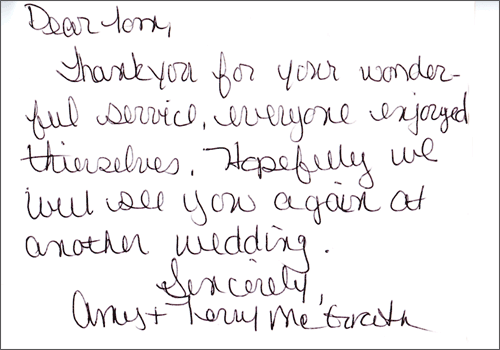 Dear Tony,
Thankyou for your wonder-
ful service, everyone enjoyed
themselves. Hopefully we
will see you again at
another wedding.
Sincerely,
Amy + Terry McGrath